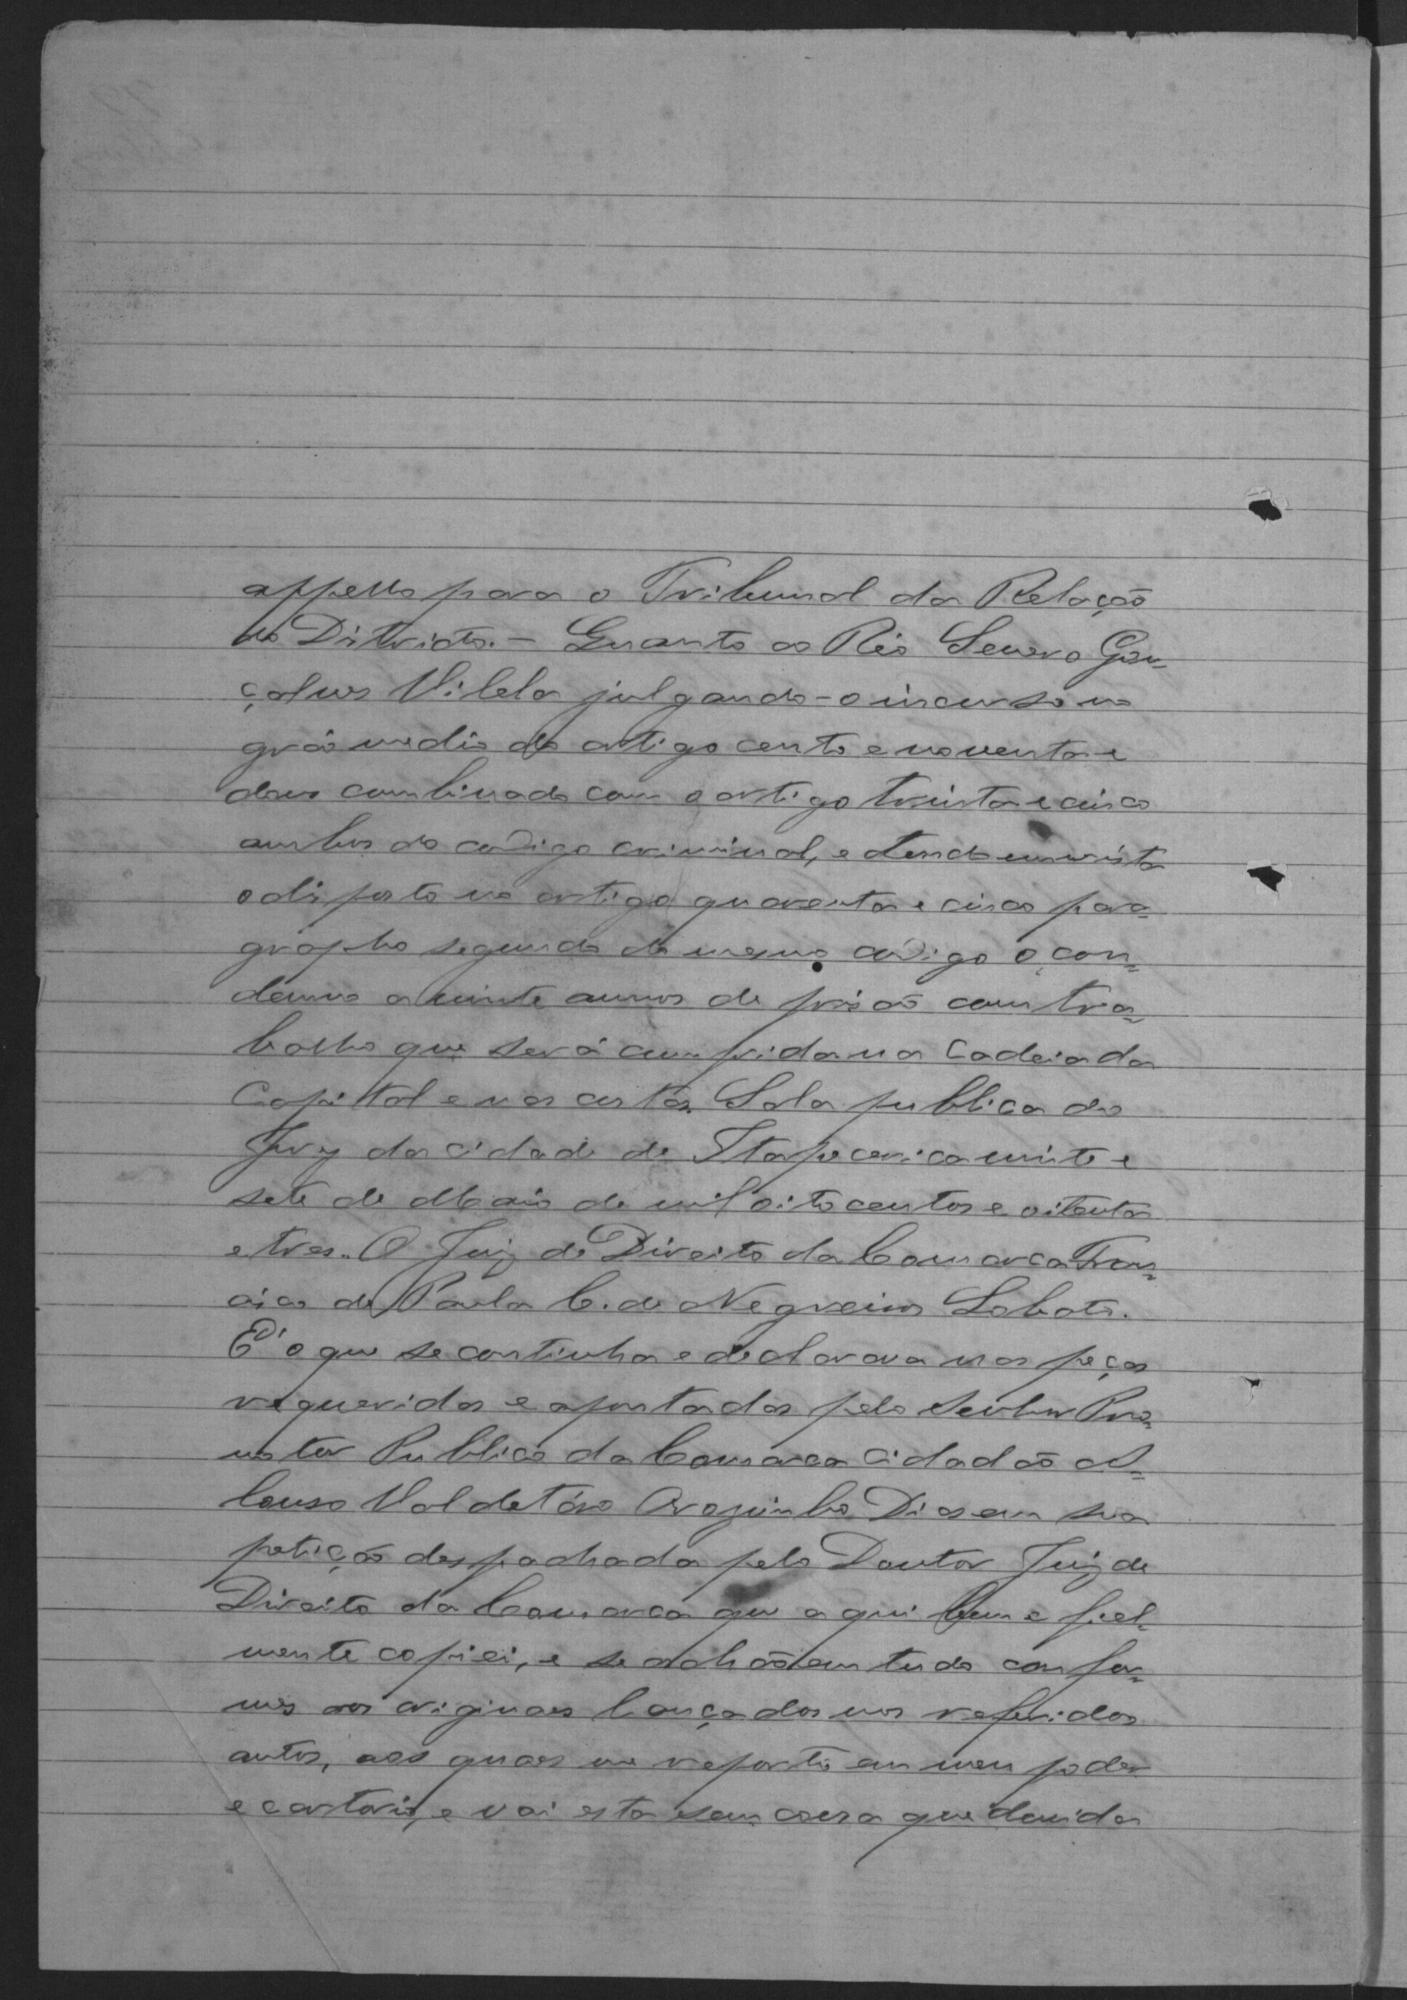 appello para o Tribunal da Relação
do Districto. – Quanto ao Réo Severo Gon-
çalves Vilela julgando-o incurso no
gráo medio do artigo cento e noventa e
dous combinado com o artigo trinta e cinco
ambos do codigo criminal, e tendo em vista
o disposto no artigo quarenta e cinco para-
grapho segundo do mesmo codigo o con-
demno a vinte annos de prisão com tra-
balho que será cumprida na Cadeia da
Capital e nas custas. Sala publica do
Jury da cidade de Itapecerica vinte e
sete de Maio de mil oito centos e oitenta
e tres. O Juiz de Direito da Comarca Fran-
cisco de Paula C. de Negreiros Lobato.
E' o que se continha e declarava nas peças
requeridas e apontadas pelo Senhor Pro-
motor Publico da Comarca Cidadão A-
lonso Valdetáro Dias em sua
petição despachada pelo Doutor Juiz de
Direito da Comarca que aqui bem e fiel-
mente copiei, e se achão em tudo confor-
mes aos originaes lançados nos referidos
autos, aos quaes me reporto em meu poder
e cartorio, e vai esta sem cousa que duvida